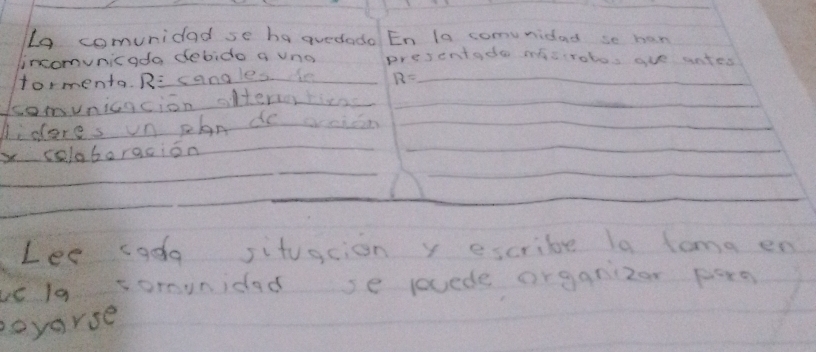 La comunidad se ha quedado
incomunicada debido a una
tormenta. R= canales de
comunicación alternativas
lideres un plan de acción
y colaboración
En la comunidad se han
presentado más robos que antes
R=
Lee cada situación y escribe la foma en
la comunidad se puede organizar para
poyarse